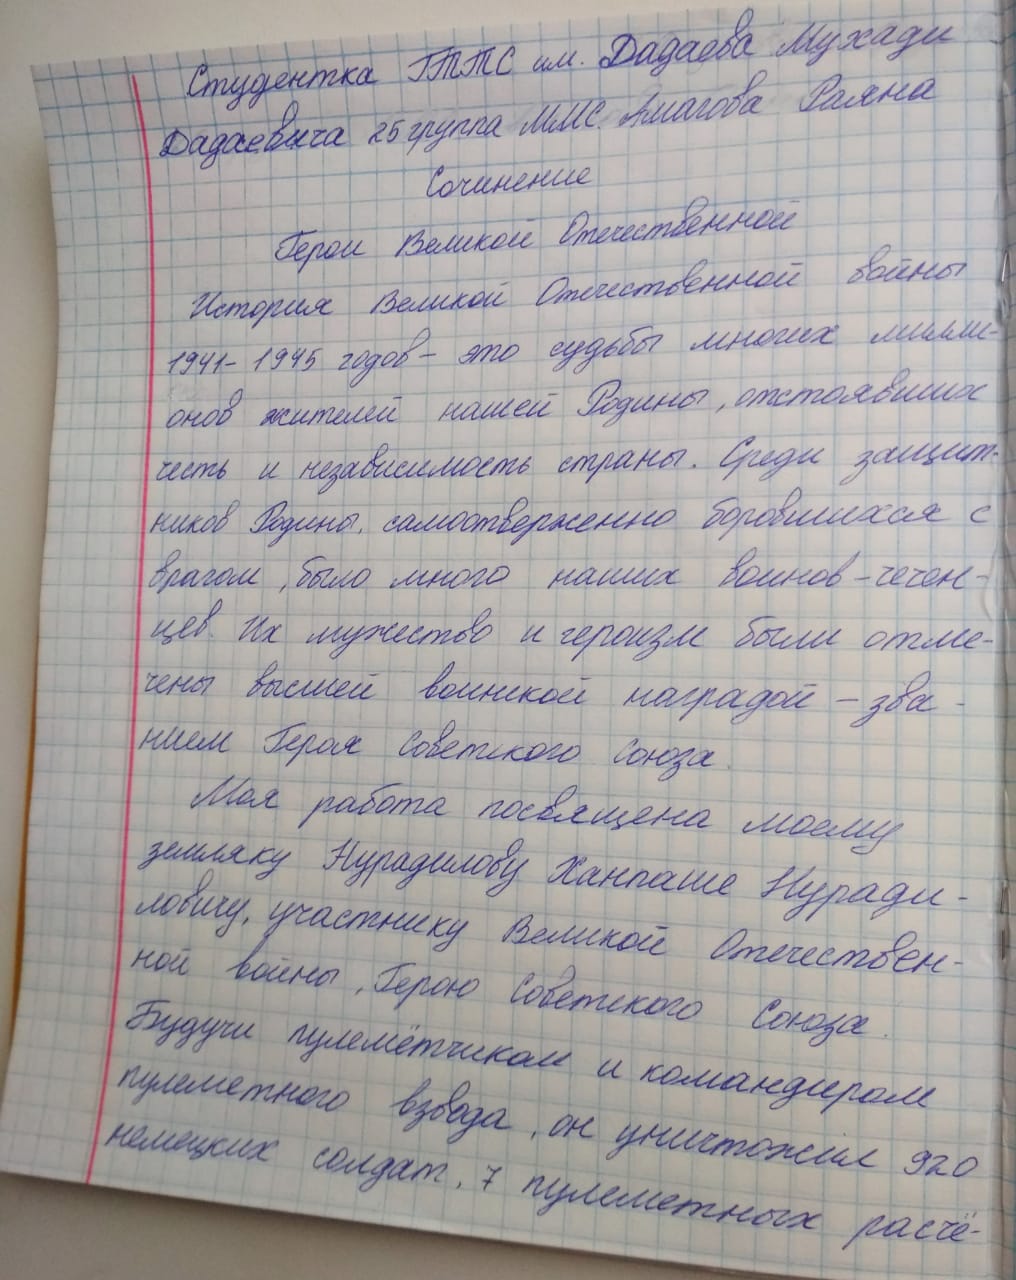 Студентка ГТТС им. Дадаева Мухади
Дадаевича 25 группа ММС. Амагова Раяна
Сочинение
Герои Великой Отечественной
История Великой Отечественной войны
1941-1945 годов - это судьбы многих милли-
онов жителей нашей Родины, отстоявших
честь и независимость страны. Среди защит-
ников Родины, самоотверженно боровшихся с
врагом, было много наших воинов-чечен-
цев. Их мужество и героизм были отме-
чены высшей воинской наградой - зва-
нием Героя Советского Союза.
Моя работа посвящена моему
земляку Нурадилову Ханпаше Нуради-
ловичу, участнику Великой Отечествен-
ной войны, Герою Советского Союза.
Будучи пулемётчиком и командиром
пулеметного взвода, он уничтожил 920
немецких солдат, 7 пулеметных расчё-